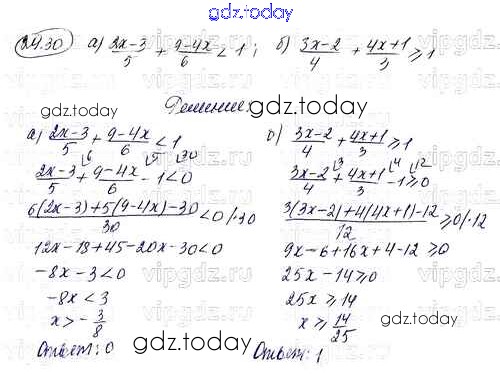 gdz.today
24.30 а) (2x-3)/5 + (9-4x)/6 < 1; б) (3x-2)/4 + (4x+1)/3 ≥ 1
gdz.today
Решение:
а) (2x-3)/5 + (9-4x)/6 < 1
(2x-3)/5 + (9-4x)/6 - 1 < 0
(6(2x-3)+5(9-4x)-30)/30 < 0 /·30
12x-18+45-20x-30<0
-8x-3<0
-8x<3
x>-3/8
Ответ: 0
б) (3x-2)/4 + (4x+1)/3 ≥ 1
(3x-2)/4 + (4x+1)/3 - 1 ≥ 0
(3(3x-2)+4(4x+1)-12)/12 ≥ 0 /·12
9x-6+16x+4-12≥0
25x-14≥0
25x≥14
x≥14/25
Ответ: 1
gdz.today
gdz.today
gdz.today